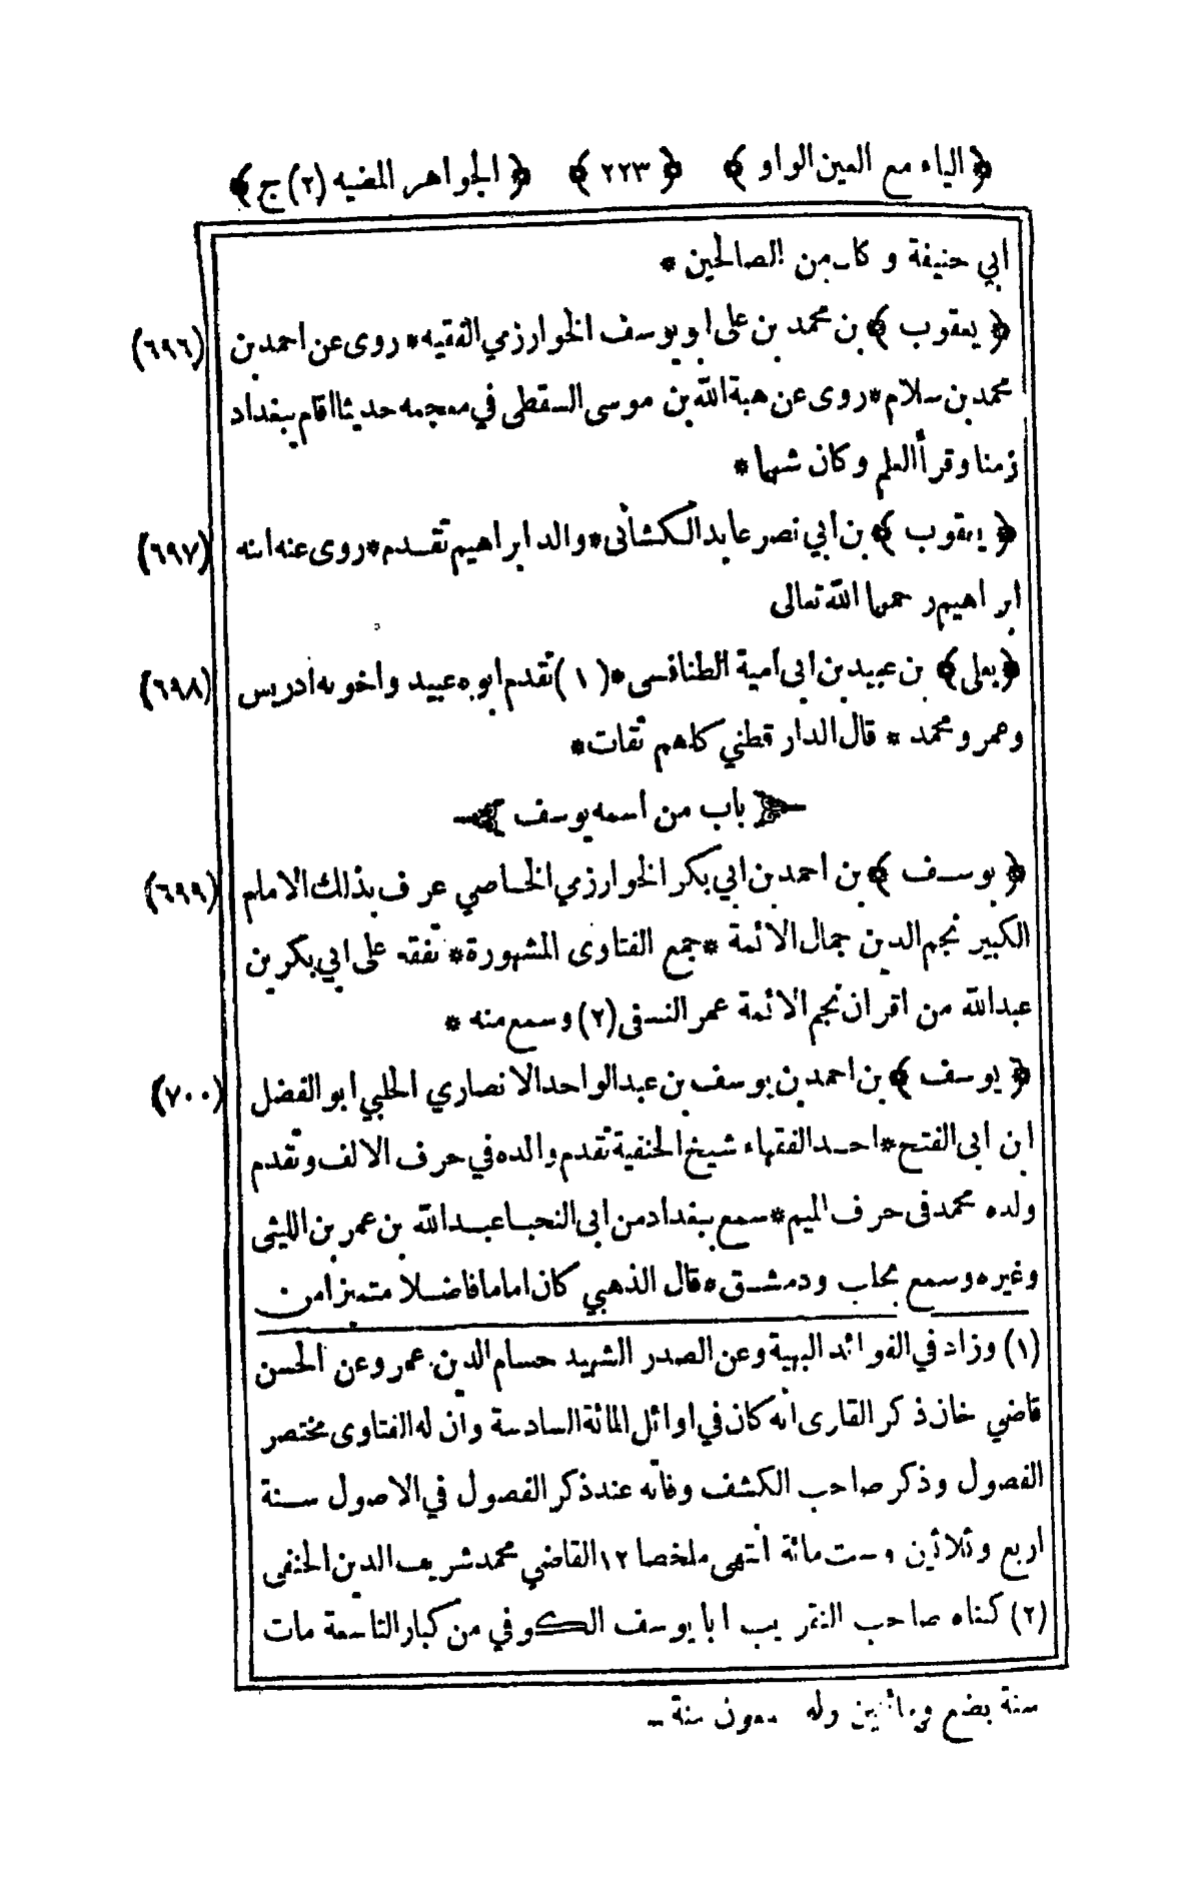 ﴿ الياء مع العين الواو ﴾ ﴿ ٢٢٣ ﴾ ﴿ الجواهر المضيه (٢) ج ﴾
ابي حنيفة و كان من الصالحين *
﴿ يعقوب ﴾ بن محمد بن على ابو يوسف الخوارزمي الفقيه * روى عن احمد بن (٦٩٦)
محمد بن سلام * روى عن هبة الله بن موسى السقطى في معجمه حديثا اقام ببغداد
زمنا وقرأ العلم وكان شهما *
﴿ يعقوب ﴾ بن ابي نصر عابد الكشانى * والد ابراهيم تقدم * روى عنه ابنه (٦٩٧)
ابراهيم رحمهما الله تعالى
﴿ يعلى ﴾ بن عبيد بن ابى امية الطنافسى * (١) تقدم ابوه عبيد واخوته ادريس (٦٩٨)
وعمر ومحمد * قال الدار قطني كلهم ثقات *
﴿ باب من اسمه يوسف ﴾
﴿ يوسف ﴾ بن احمد بن ابي بكر الخوارزمي الخاصي عرف بذلك الامام (٦٩٩)
الكبير نجم الدين جمال الائمة * جمع الفتاوى المشهورة * تفقه على ابي بكر بن
عبد الله من اقران نجم الائمة عمر النسفى (٢) وسمع منه *
﴿ يوسف ﴾ بن احمد بن يوسف بن عبد الواحد الانصاري الحلبي ابو الفضل (٧٠٠)
ابن ابى الفتح * احد الفقهاء شيخ الحنفية تقدم والده في حرف الالف وتقدم
ولده محمد فى حرف الميم * سمع ببغداد من ابى النجا عبد الله بن عمر بن الليثى
وغيره وسمع بحلب ودمشق * قال الذهبي كان اماما فاضلا متميزا من
(١) وزاد في الفوائد البهية وعن الصدر الشهيد حسام الدين عمر وعن الحسن
قاضي خان ذكر القارى انه كان في اوائل المائة السادسة وان له الفتاوى مختصر
الفصول وذكر صاحب الكشف وفاته عند ذكر الفصول في الاصول سنة
اربع وثلاثين وست مائة انتهى ملخصا ١٢ القاضي محمد شريف الدين الحنفى
(٢) كناه صاحب التقريب ابا يوسف الكوفي من كبار التاسعة مات
سنة بضع ومائتين وله سنة ــ